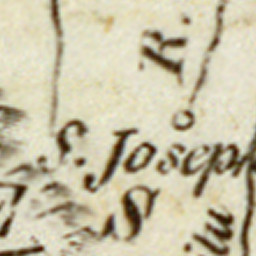 R.
S. Joseph
S